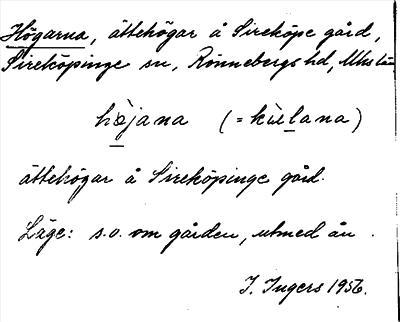 Högarna, ättehögar å Sireköpe gård,
Sireköpinge sn, Rönnebergs hd, Mhs län
hæ̀jana (= kùlana)
ättehögar å Sireköpinge gård.
Läge: s.o. om gården, utmed ån.
I. Ingers 1956.